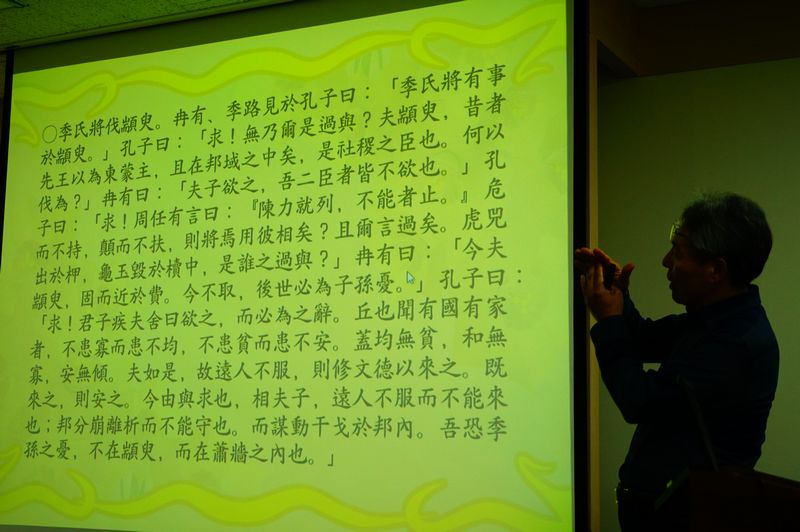 ○季氏將伐顓臾。冉有、季路見於孔子曰：「季氏將有事
於顓臾。」孔子曰：「求！無乃爾是過與？夫顓臾，昔者
先王以為東蒙主，且在邦域之中矣，是社稷之臣也。何以
伐為？」冉有曰：「夫子欲之，吾二臣者皆不欲也。」孔
子曰：「求！周任有言曰：『陳力就列，不能者止。』危
而不持，顛而不扶，則將焉用彼相矣？且爾言過矣。虎兕
出於柙，龜玉毀於櫝中，是誰之過與？」冉有曰：「今夫
顓臾，固而近於費。今不取，後世必為子孫憂。」孔子曰：
「求！君子疾夫舍曰欲之，而必為之辭。丘也聞有國有家
者，不患寡而患不均，不患貧而患不安。蓋均無貧，和無
寡，安無傾。夫如是，故遠人不服，則修文德以來之。既
來之，則安之。今由與求也，相夫子，遠人不服而不能來
也；邦分崩離析而不能守也。而謀動干戈於邦內。吾恐季
孫之憂，不在顓臾，而在蕭牆之內也。」